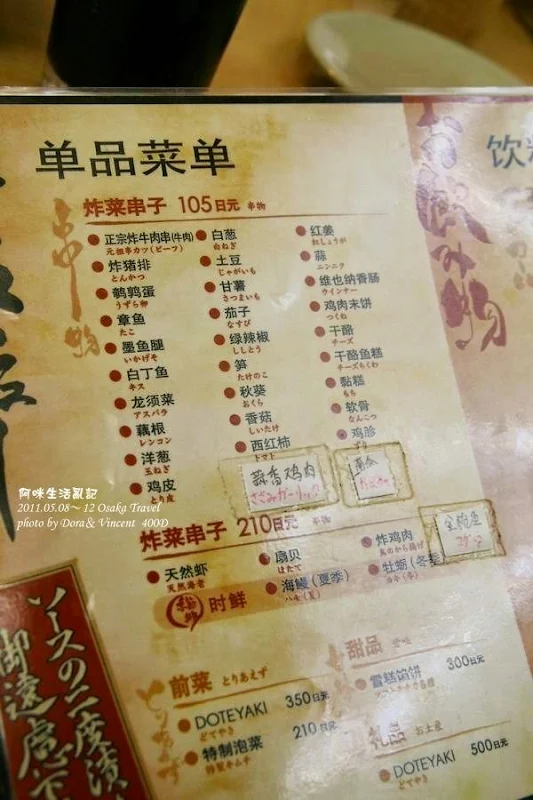 单品菜单
饮料
炸菜串子 105日元 串物
串物
正宗炸牛肉串(牛肉)
元祖串カツ(ビーフ)
炸猪排
とんかつ
鹌鹑蛋
うずら卵
章鱼
たこ
墨鱼腿
いかげそ
白丁鱼
キス
龙须菜
アスパラ
藕根
レンコン
洋葱
玉ねぎ
鸡皮
とり皮
白葱
白ねぎ
土豆
じゃがいも
甘薯
さつまいも
茄子
なすび
绿辣椒
ししとう
笋
たけのこ
秋葵
おくら
香菇
しいたけ
西红柿
トマト
红姜
紅しょうが
蒜
ニンニク
维也纳香肠
ウインナー
鸡肉末饼
つくね
干酪
チーズ
干酪鱼糕
チーズちくわ
黏糕
もち
软骨
なんこつ
鸡胗
ずり
蒜香鸡肉
ささみガーリック
炸菜串子 210日元 串物
天然虾
天然海老
扇贝
ほたて
炸鸡肉
鳥のから揚げ
串物
时鲜
海鳗(夏季)
ハモ(夏)
牡蛎(冬季
カキ(冬)
前菜 とりあえず
DOTEYAKI 350日元
どてやき
特制泡菜 210日元
特製キムチ
甜品
雪糕馅饼 300日元
礼品 お土産
DOTEYAKI 500日元
どてやき
ソースの二度漬
御遠慮下
阿味生活亂記
2011.05.08~12 Osaka Travel
photo by Dora & Vincent 400D